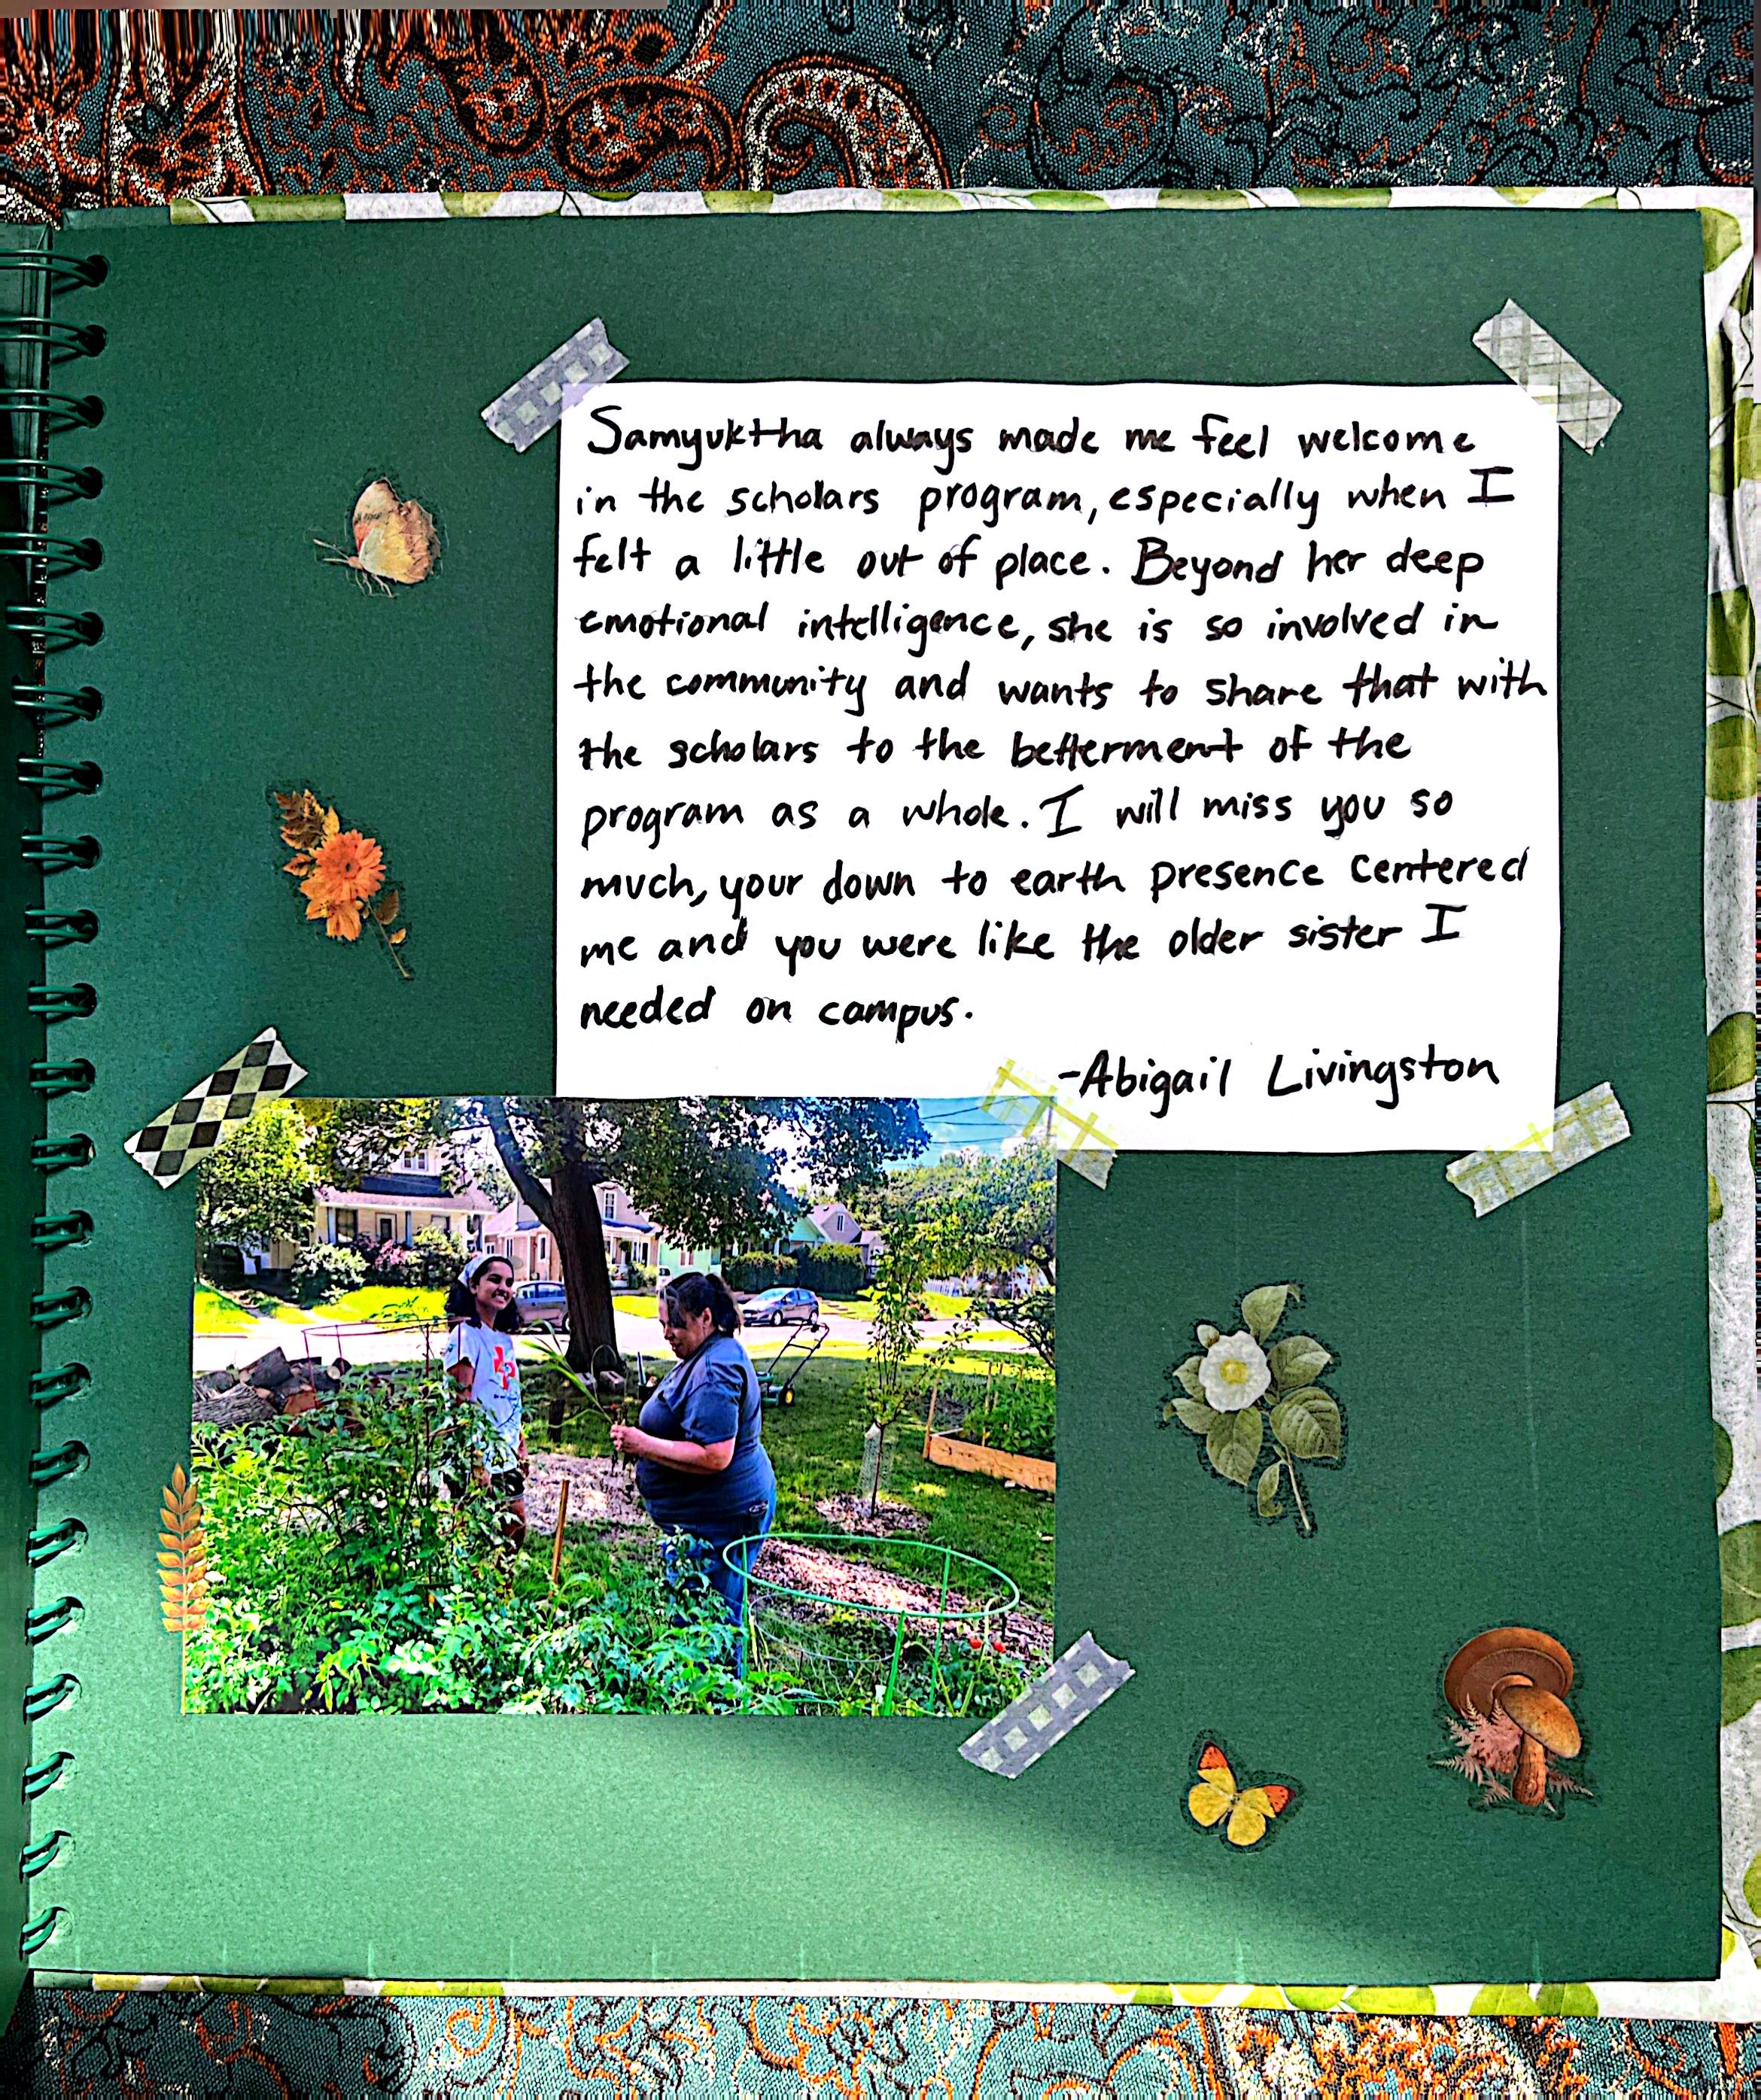 Samyuktha always made me feel welcome
in the scholars program, especially when I
felt a little out of place. Beyond her deep
emotional intelligence, she is so involved in
the community and wants to share that with
the scholars to the betterment of the
program as a whole. I will miss you so
much, your down to earth presence centered
me and you were like the older sister I
needed on campus.
-Abigail Livingston